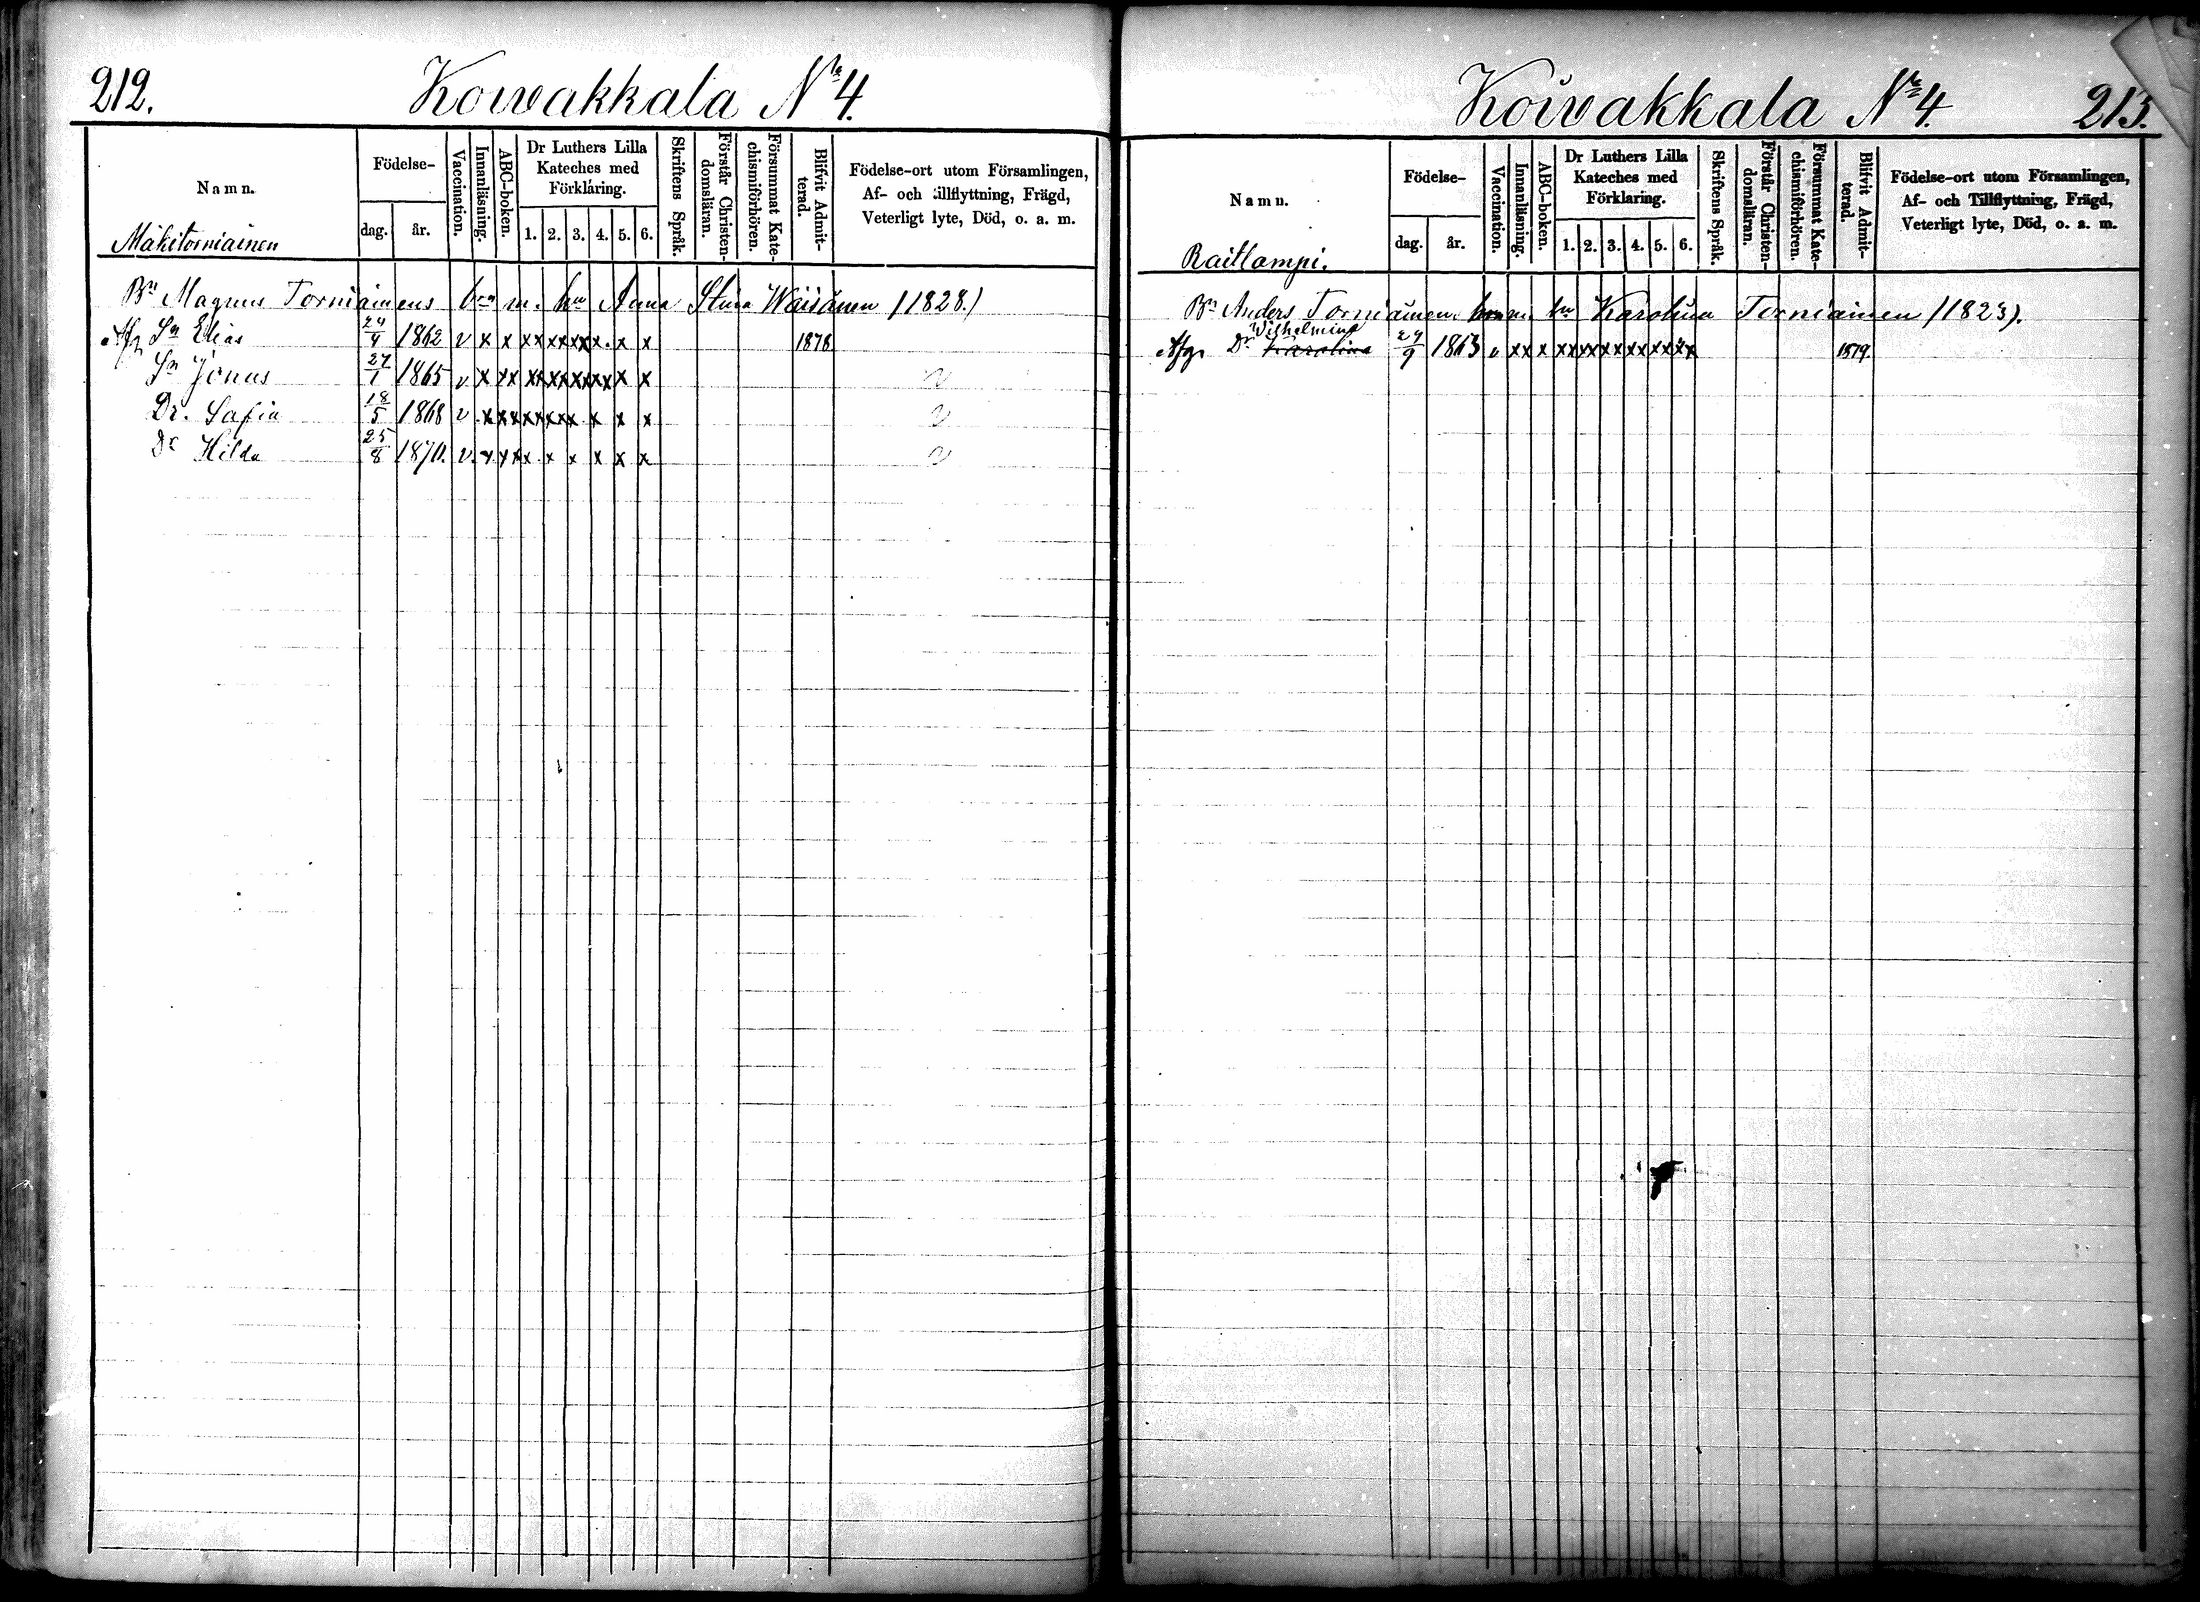 212.
Koivakkala No 4.
Namn.
Födelse-
dag. år.
Vaccination.
Innanläsning.
ABC-boken.
Dr Luthers Lilla
Kateches med
Förklaring.
1. 2. 3. 4. 5. 6.
Skriftens Språk.
Förstår Christen-
domsläran.
Försummat Kate-
chismiförhören.
Blifvit Admit-
terad.
Födelse-ort utom Församlingen,
Af- och Tillflyttning, Frägd,
Veterligt lyte, Död, o. a. m.
Mäkitorniainen
Bn Magnus Torniainens brn m. hu Anna Stina Wäisänen (1828.)
Afg Sn Elias 24/4 1862 v x x xx xx xx x. x x 1878
Sn Jonas 27/1 1865 v x xx xx xx xx xx x x
Dr. Safia 18/5 1868 v x xx xx xx x x x x
Dr Hilda 25/8 1870. v. x xx x x x x x x
Koivakkala Nr 4. 213.
Namn.
Födelse-
dag. år.
Vaccination.
Innanläsning.
ABC-boken.
Dr Luthers Lilla
Kateches med
Förklaring.
1. 2. 3. 4. 5. 6.
Skriftens Språk.
Förstår Christen-
domsläran.
Försummat Kate-
chismiförhören.
Blifvit Admit-
terad.
Födelse-ort utom Församlingen,
Af- och Tillflyttning, Frägd,
Veterligt lyte, Död, o. a. m.
Raitlampi.
Bn Anders Torniainen m. hu Karolina Torniainen (1823).
Wilhelmina
Afg. Dr Karolina 24/9 1863 v xx x xx xx xx xx xx xx 1879.